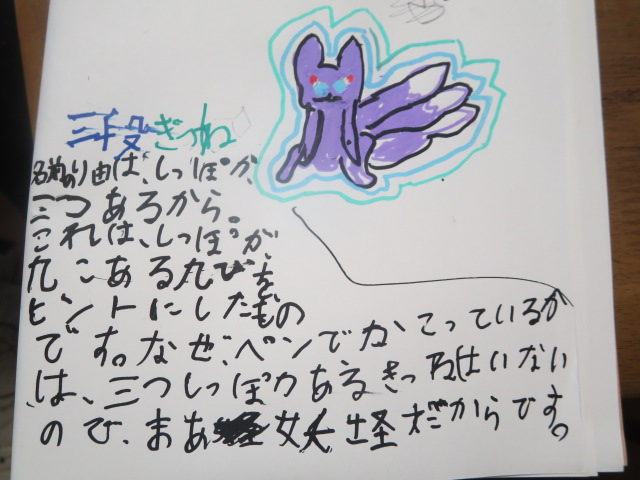 三段ぎつね
名前の由は、しっぽが、
三つあるから。
これは、しっぽが、
九こある九びを
ヒントにしたもの
です。なぜ、ペンでかこっているか
は、三つしっぽがあるきつねはいない
ので、まあ 妖怪だからです。